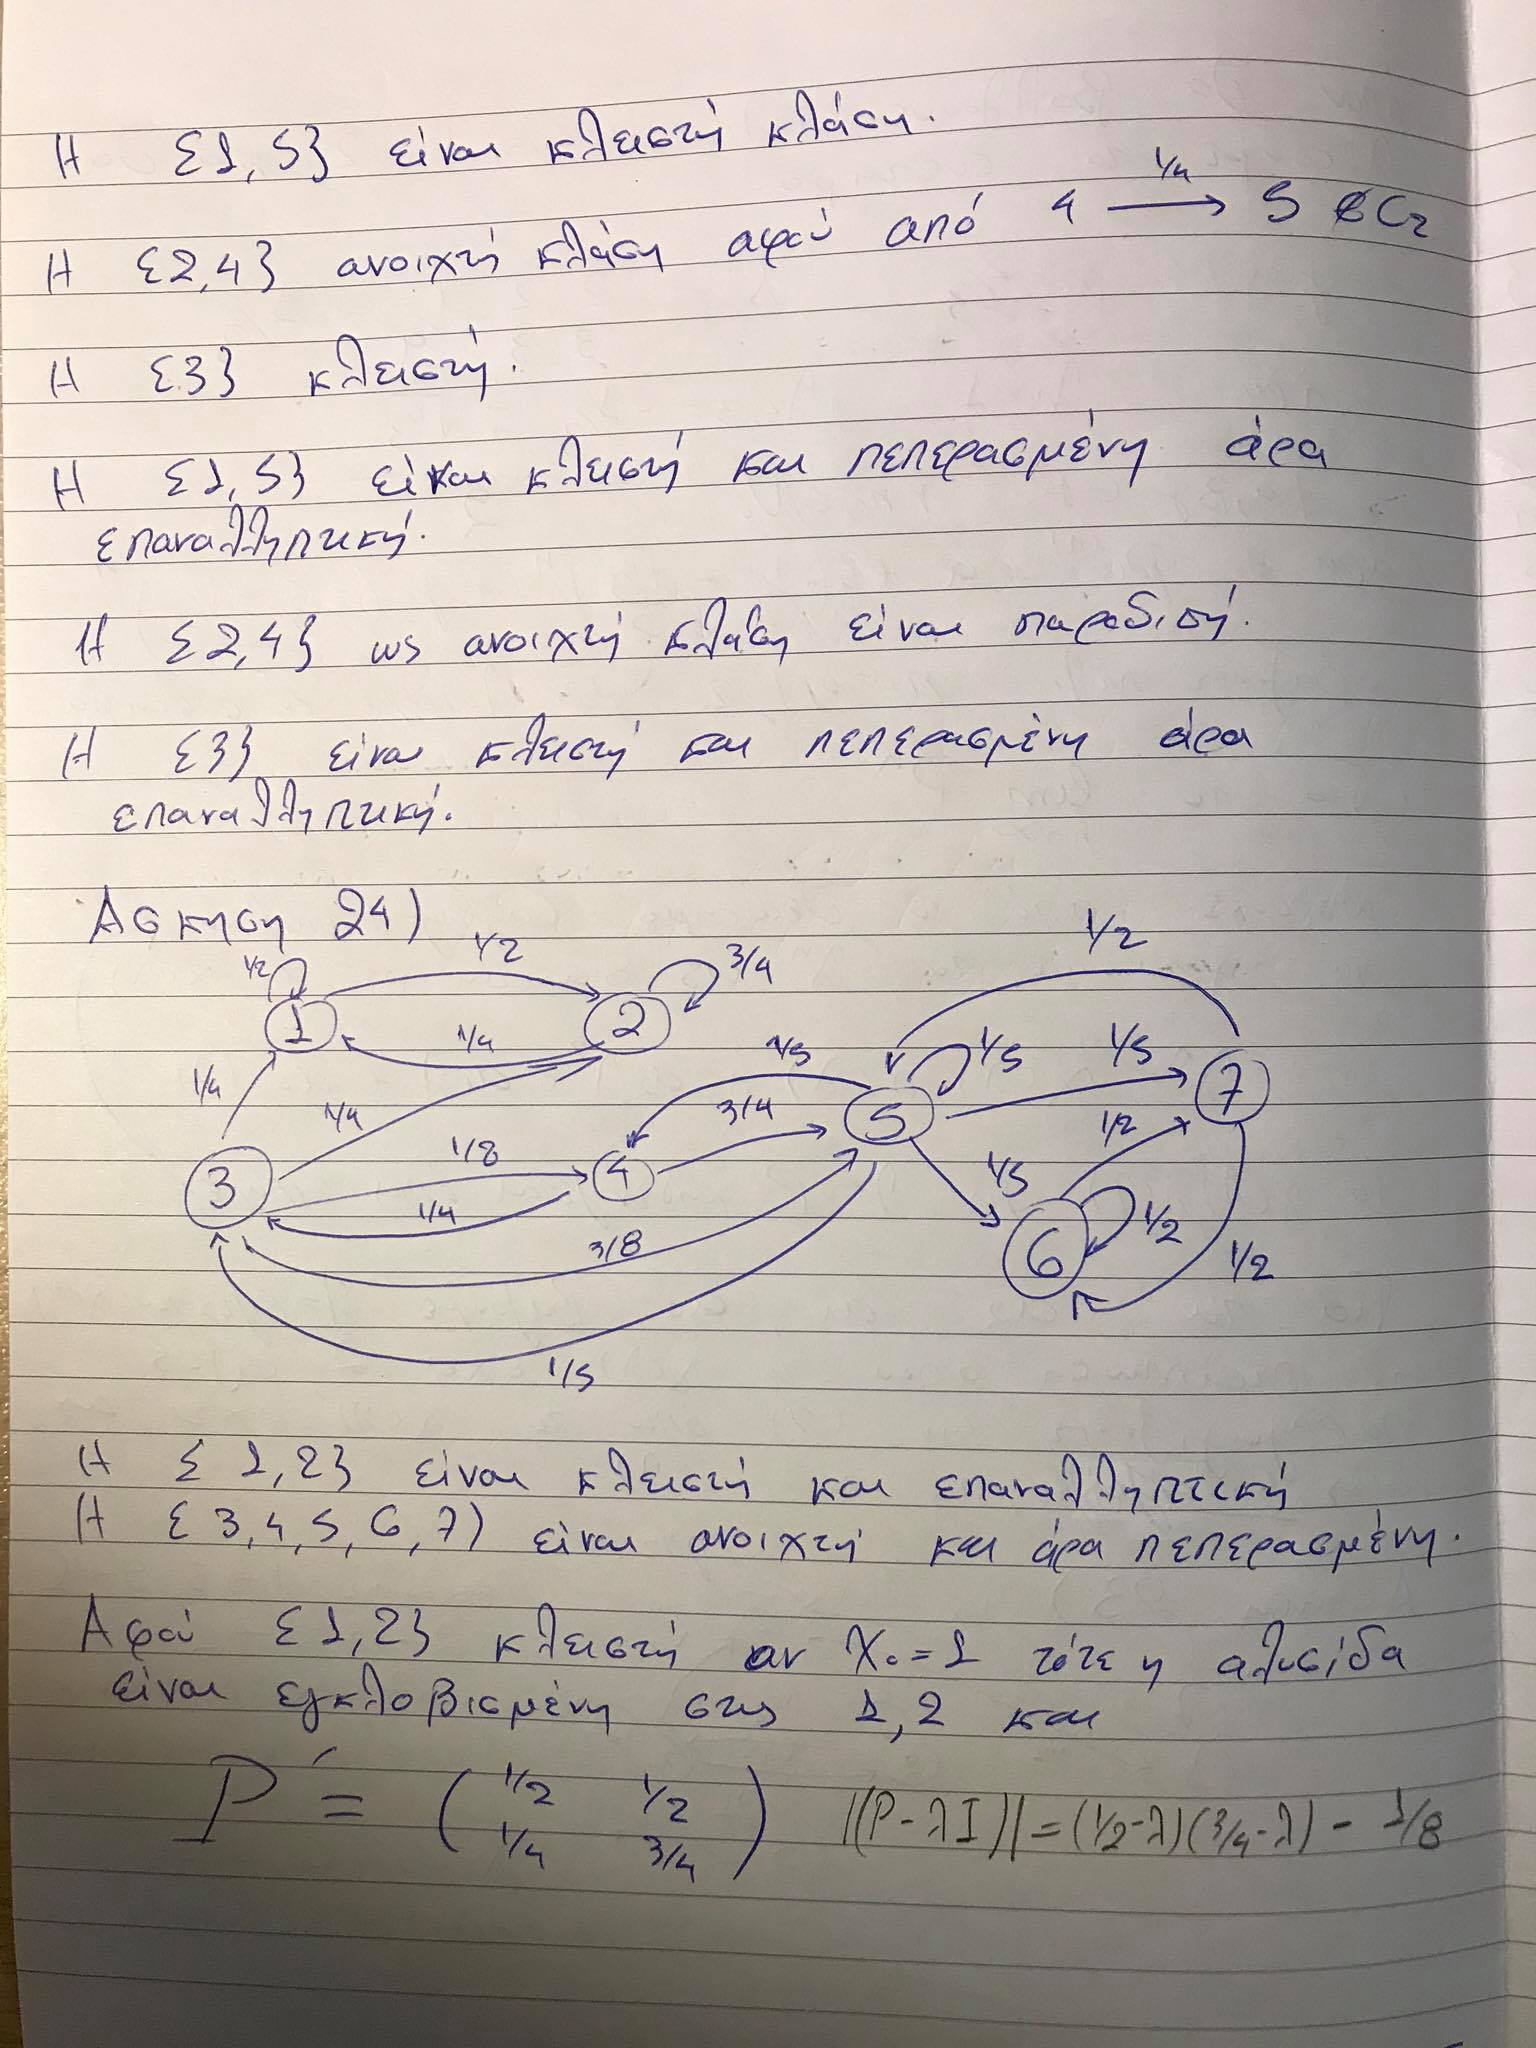 Η {1,5} είναι κλειστή κλάση.
Η {2,4} ανοιχτή κλάση αφού από 4 →^{1/4} 5 ∈ C2
Η {3} κλειστή.
Η {1,5} είναι κλειστή και πεπερασμένη άρα
επαναλληπτική.
Η {2,4} ως ανοιχτή κλάση είναι παροδική.
Η {3} είναι κλειστή και πεπερασμένη άρα
επαναλληπτική.
Άσκηση 24)
1/2 1/2 3/4 1/2
1 2
1/4 1/5 1/5 1/5 7
1/4 1/4 3/4 5 1/2
3 1/8 4 1/5
1/4 3/8 6 1/2 1/2
1/5
Η {1,2} είναι κλειστή και επαναλληπτική
Η {3,4,5,6,7) είναι ανοιχτή και άρα πεπερασμένη.
Αφού {1,2} κλειστή αν X₀=1 τότε η αλυσίδα
είναι εγκλοβισμένη στις 1,2 και
P' = ( 1/2 1/2
1/4 3/4 ) |(P-λI)| = (1/2-λ)(3/4-λ) - 1/8